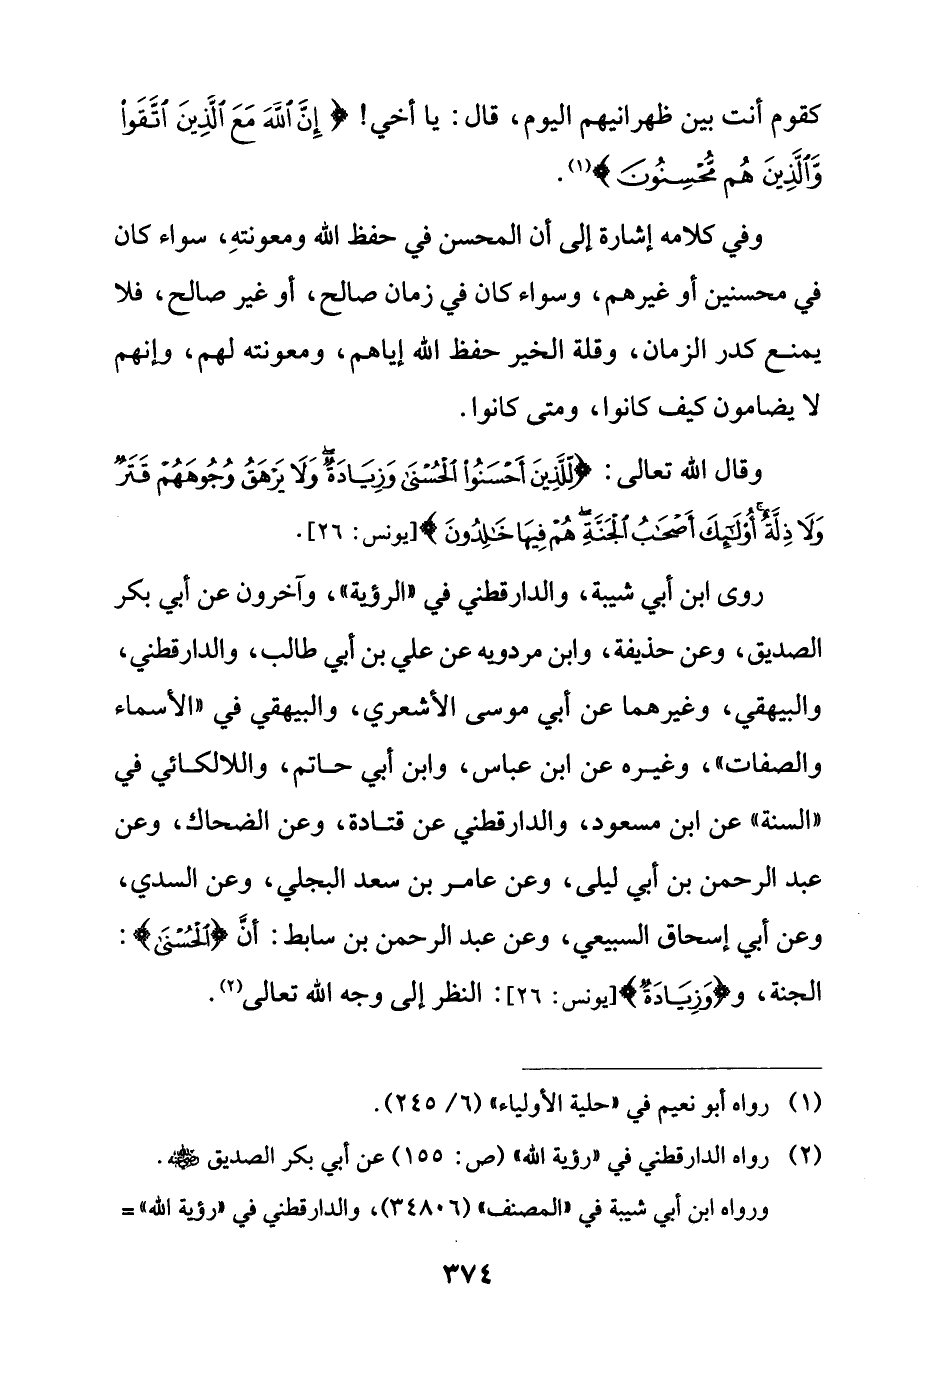 كقوم أنت بين ظهرانيهم اليوم، قال: يا أخي! ﴿ إِنَّ ٱللَّهَ مَعَ ٱلَّذِينَ ٱتَّقَوا۟
وَّٱلَّذِينَ هُم مُّحْسِنُونَ ﴾(١).
وفي كلامه إشارة إلى أن المحسن في حفظ الله ومعونتهِ، سواء كان
في محسنين أو غيرهم، وسواء كان في زمان صالح، أو غير صالح، فلا
يمنع كدر الزمان، وقلة الخير حفظ الله إياهم، ومعونته لهم، وإنهم
لا يضامون كيف كانوا، ومتى كانوا.
وقال الله تعالى: ﴿لِّلَّذِينَ أَحْسَنُوا۟ ٱلْحُسْنَىٰ وَزِيَادَةٌ ۖ وَلَا يَرْهَقُ وُجُوهَهُمْ قَتَرٌ
وَلَا ذِلَّةٌ ۚ أُو۟لَٰٓئِكَ أَصْحَٰبُ ٱلْجَنَّةِ ۖ هُمْ فِيهَا خَٰلِدُونَ ﴾[يونس: ٢٦].
روى ابن أبي شيبة، والدارقطني في «الرؤية»، وآخرون عن أبي بكر
الصديق، وعن حذيفة، وابن مردويه عن علي بن أبي طالب، والدارقطني،
والبيهقي، وغيرهما عن أبي موسى الأشعري، والبيهقي في «الأسماء
والصفات»، وغيره عن ابن عباس، وابن أبي حاتم، واللالكائي في
«السنة» عن ابن مسعود، والدارقطني عن قتادة، وعن الضحاك، وعن
عبد الرحمن بن أبي ليلى، وعن عامر بن سعد البجلي، وعن السدي،
وعن أبي إسحاق السبيعي، وعن عبد الرحمن بن سابط: أنَّ ﴿ٱلْحُسْنَىٰ﴾:
الجنة، و﴿وَزِيَادَةٌ﴾[يونس: ٢٦]: النظر إلى وجه الله تعالى(٢).
(١) رواه أبو نعيم في «حلية الأولياء» (٦/ ٢٤٥).
(٢) رواه الدارقطني في «رؤية الله» (ص: ١٥٥) عن أبي بكر الصديق ﵁.
ورواه ابن أبي شيبة في «المصنف» (٣٤٨٠٦)، والدارقطني في «رؤية الله» =
٣٧٤